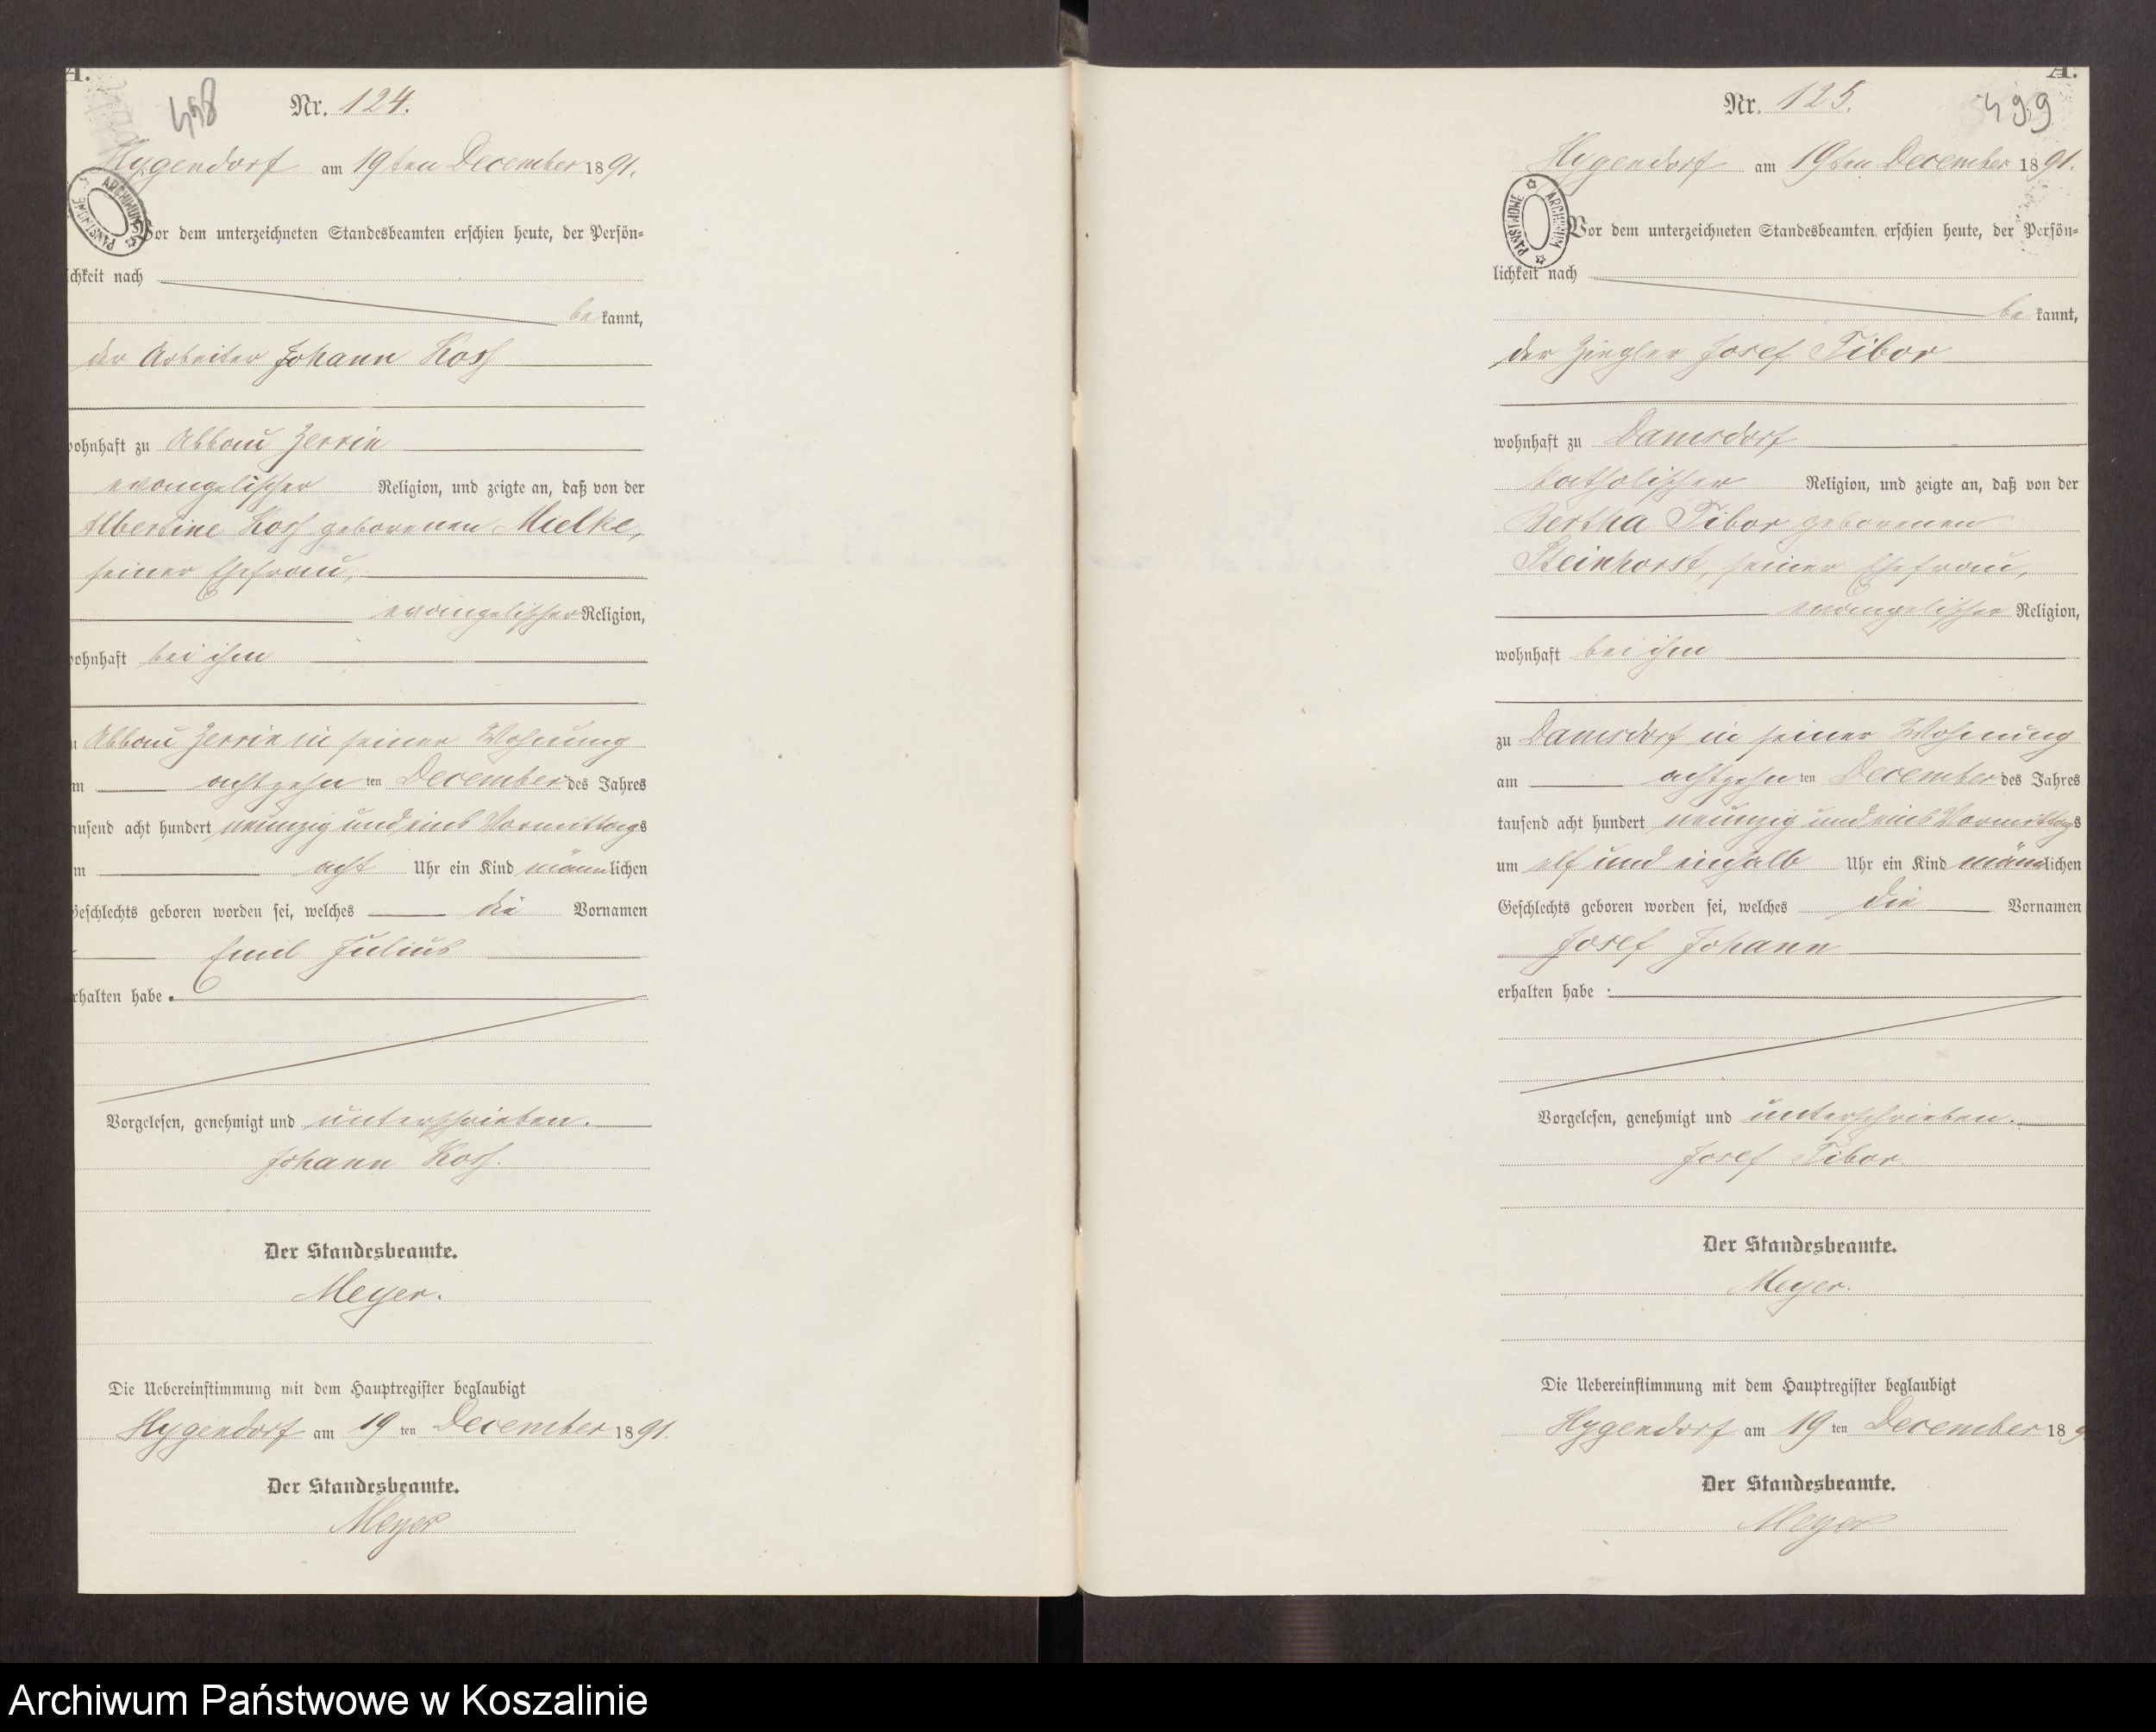 A.
498
Nr. 124.
Hygendorf am 19ten December 1891.
ARCHIWUM PAŃSTWOWE
Vor dem unterzeichneten Standesbeamten erschien heute, der Persön=
ichkeit nach
be kannt,
der Arbeiter Johann Koss
wohnhaft zu Abbau Zerrin
evangelischer Religion, und zeigte an, daß von der
Albertine Koss geborenen Mielke,
seiner Ehefrau,
evangelischer Religion,
wohnhaft bei ihm
u Abbau Zerrin in seiner Wohnung
m achtzehn ten December des Jahres
ausend acht hundert neunzig und eins Vormittags
m acht Uhr ein Kind männlichen
Geschlechts geboren worden sei, welches die Vornamen
Emil Julius
rhalten habe.
Vorgelesen, genehmigt und unterschrieben.
Johann Koss.
Der Standesbeamte.
Meyer.
Die Uebereinstimmung mit dem Hauptregister beglaubigt
Hygendorf am 19 ten December 1891.
Der Standesbeamte.
Meyer
A.
499
Nr. 125.
Hygendorf am 19ten December 1891.
ARCHIWUM PAŃSTWOWE
Vor dem unterzeichneten Standesbeamten erschien heute, der Persön=
lichkeit nach
be kannt,
der Ziegler Josef Tibor
wohnhaft zu Damsdorf
katholischer Religion, und zeigte an, daß von der
Bertha Tibor geborenen
Steinhorst, seiner Ehefrau,
evangelischer Religion,
wohnhaft bei ihm
zu Damsdorf in seiner Wohnung
am achtzehn ten December des Jahres
tausend acht hundert neunzig und eins Vormittags
um elf und einhalb Uhr ein Kind männlichen
Geschlechts geboren worden sei, welches die Vornamen
Josef Johann
erhalten habe :
Vorgelesen, genehmigt und unterschrieben.
Josef Tibor.
Der Standesbeamte.
Meyer.
Die Uebereinstimmung mit dem Hauptregister beglaubigt
Hygendorf am 19 ten December 189
Der Standesbeamte.
Meyer
Archiwum Państwowe w Koszalinie